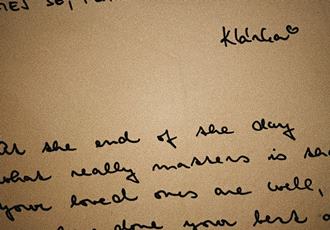 Klárka
At the end of the day
what really matters is
your loved ones are well,
done your best